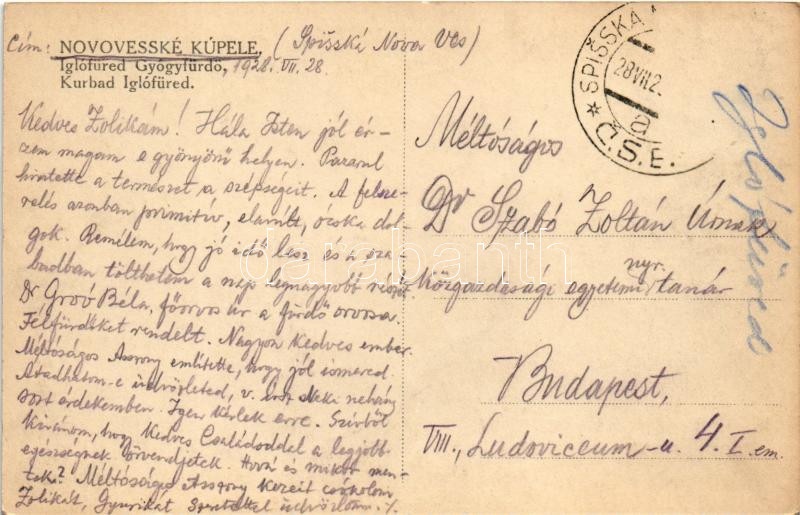 Cím: NOVOVESSKÉ KÚPELE, (Spišská Nova Ves)
Iglófüred Gyógyfürdő, 1928. VII. 28.
Kurbad Iglófüred.
Kedves Zolikám! Hála Isten jól ér-
zem magam e gyönyörű helyen. Pazarul
hintette a természet a szépségeit. A felsze-
relés azonban primitív, elavult, ócska dol-
gok. Remélem, hogy jó idő lesz és a sza-
badban tölthetem a nap legnagyobb részét.
Dr Groó Béla, főorvos úr a fürdő orvosa.
Félfürdőket rendelt. Nagyon kedves ember.
Méltóságos Asszony említette, hogy jól ismered.
Átadhatom-e üdvözleted, v. írsz Neki néhány
sort érdekemben. Igen kérlek erre. Szívből
kívánom, hogy Kedves Családoddal a legjobb
egészségnek örvendjetek. Hová és mikor men-
tek? Méltóságos Asszony kezeit csókolom,
Zolikát, Gyurikát szeretettel üdvözlöm ./.
SPIŠSKÁ
28.VII.2
a
Č.S.E.
Iglófüred
Méltóságos
Dr Szabó Zoltán Úrnak
nyr.
Közgazdasági egyetemi tanár
Budapest,
VIII., Ludoviceum-u. 4. I. em.
darabanth